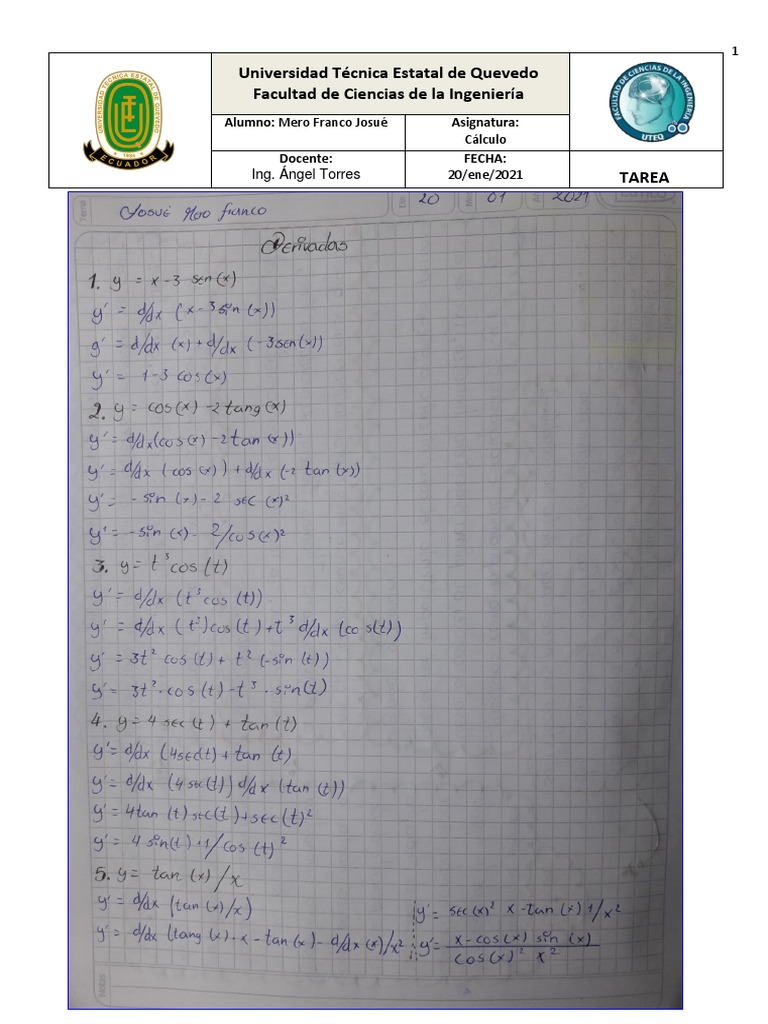 1
UNIVERSIDAD TÉCNICA ESTATAL DE QUEVEDO
1984
ECUADOR
Universidad Técnica Estatal de Quevedo
Facultad de Ciencias de la Ingeniería
Alumno: Mero Franco Josué
Asignatura:
Cálculo
Docente:
Ing. Ángel Torres
FECHA:
20/ene/2021
FACULTAD DE CIENCIAS DE LA INGENIERÍA
UTEQ
TAREA
Tema
Josué Mero Franco
20 01 2021
Derivadas
1. y = x-3 sen(x)
y' = d/dx (x-3 sin (x))
y' = d/dx (x) + d/dx (-3 sen(x))
y' = 1-3 cos(x)
2. y = cos(x) -2 tang(x)
y' = d/dx(cos(x) -2 tan (x))
y' = d/dx (cos (x)) + d/dx (-2 tan (x))
y' = -sin (x) - 2 sec (x)²
y' = -sin (x) - 2/cos(x)²
3. y = t³ cos(t)
y' = d/dx (t³ cos (t))
y' = d/dx (t³) cos(t) + t³ d/dx (cos(t))
y' = 3t² cos(t) + t² (-sin (t))
y' = 3t² · cos(t) - t³ · sin(t)
4. y = 4 sec(t) + tan(t)
y' = d/dx (4sec(t) + tan (t)
y' = d/dx (4 sec(t)) d/dx (tan (t))
y' = 4tan (t) sec(t) + sec(t)²
y' = 4 sin(t) + 1/cos (t)²
5. y = tan (x) / x
y' = d/dx (tan (x) / x)
y' = d/dx (tang (x) · x - tan(x) - d/dx (x)/x²
y' = sec(x)² x - tan(x) 1/x²
y' = x - cos(x) sin (x)
cos(x)² x²
Notas